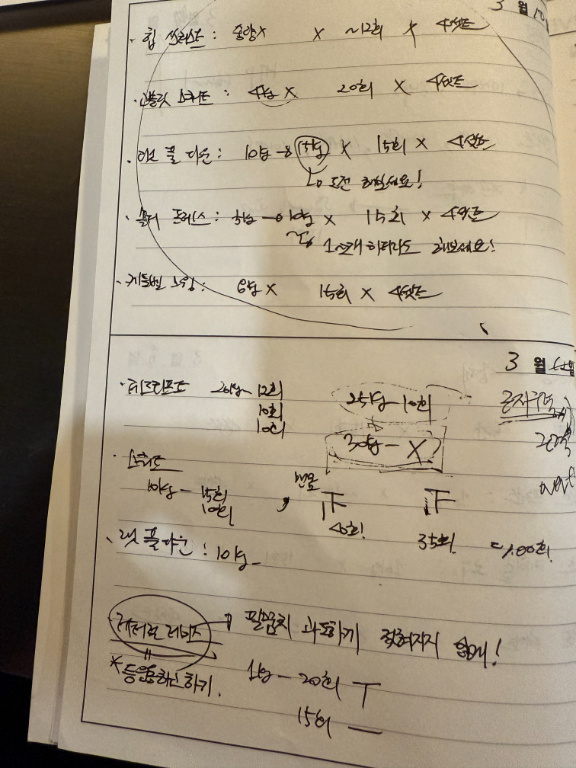 3 월
· 힙 쓰러스트 : 중량 X X ~12회 X 4셋트
· 스플릿 스쿼트 : 4kg X 20회 X 4셋트
· 랫 풀 다운 : 10kg → 15kg X 15회 X 4셋트
↳ 도전 해보세요!
· 숄더 프레스 : → 10kg X 15회 X 4셋트
1세트라도 해보세요!
· 케틀벨 스윙 : 6kg X 15회 X 4셋트
3 월
· 데드리프트 20kg - 12회
10회
10회
25kg - 10회
30kg - X
· 스쿼트
10kg - 15회
10회
맨몸
40회!
35회
100회!
· 랫 풀 다운 : 10kg -
레터럴 레이즈 → 팔꿈치 과도하게 젖혀지지 않게!
* 등운동하기.
1kg - 20회 T
15회 —